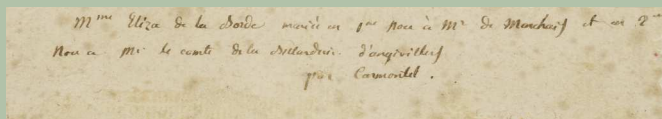 Mme Eliza de la Borde mariée en 1re Noce à Mr de Marchais et en 2
Noce a Mr Le comte de la Billardrie d'angivillers
par Carmontel.